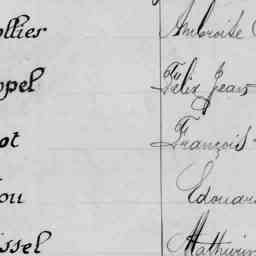 ollier Ambroise
ppel Félix Jean
ot François
ou Edouar
ssel Mathurin